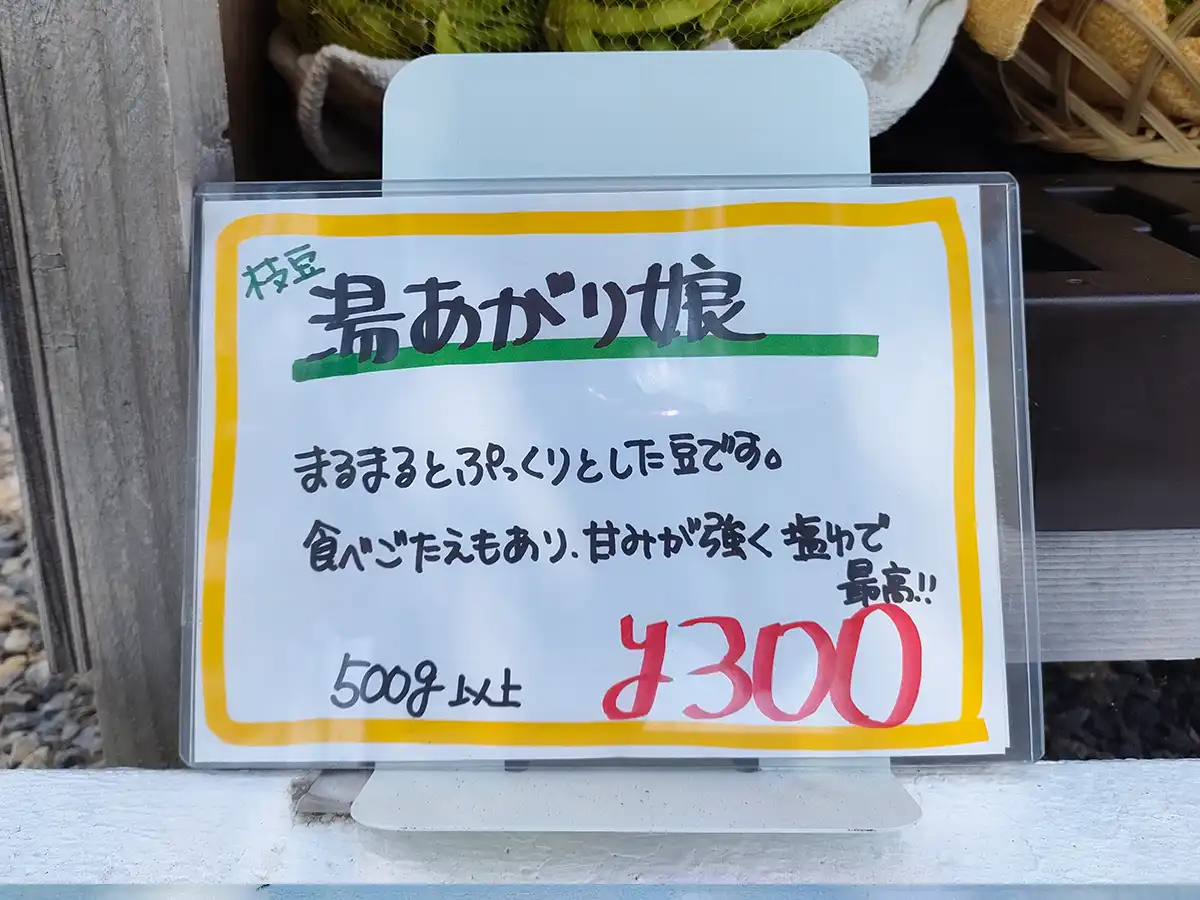 枝豆
湯あがり娘
まるまるとぷっくりとした豆です。
食べごたえもあり、甘みが強く塩ゆで
最高!!
500g以上
¥300